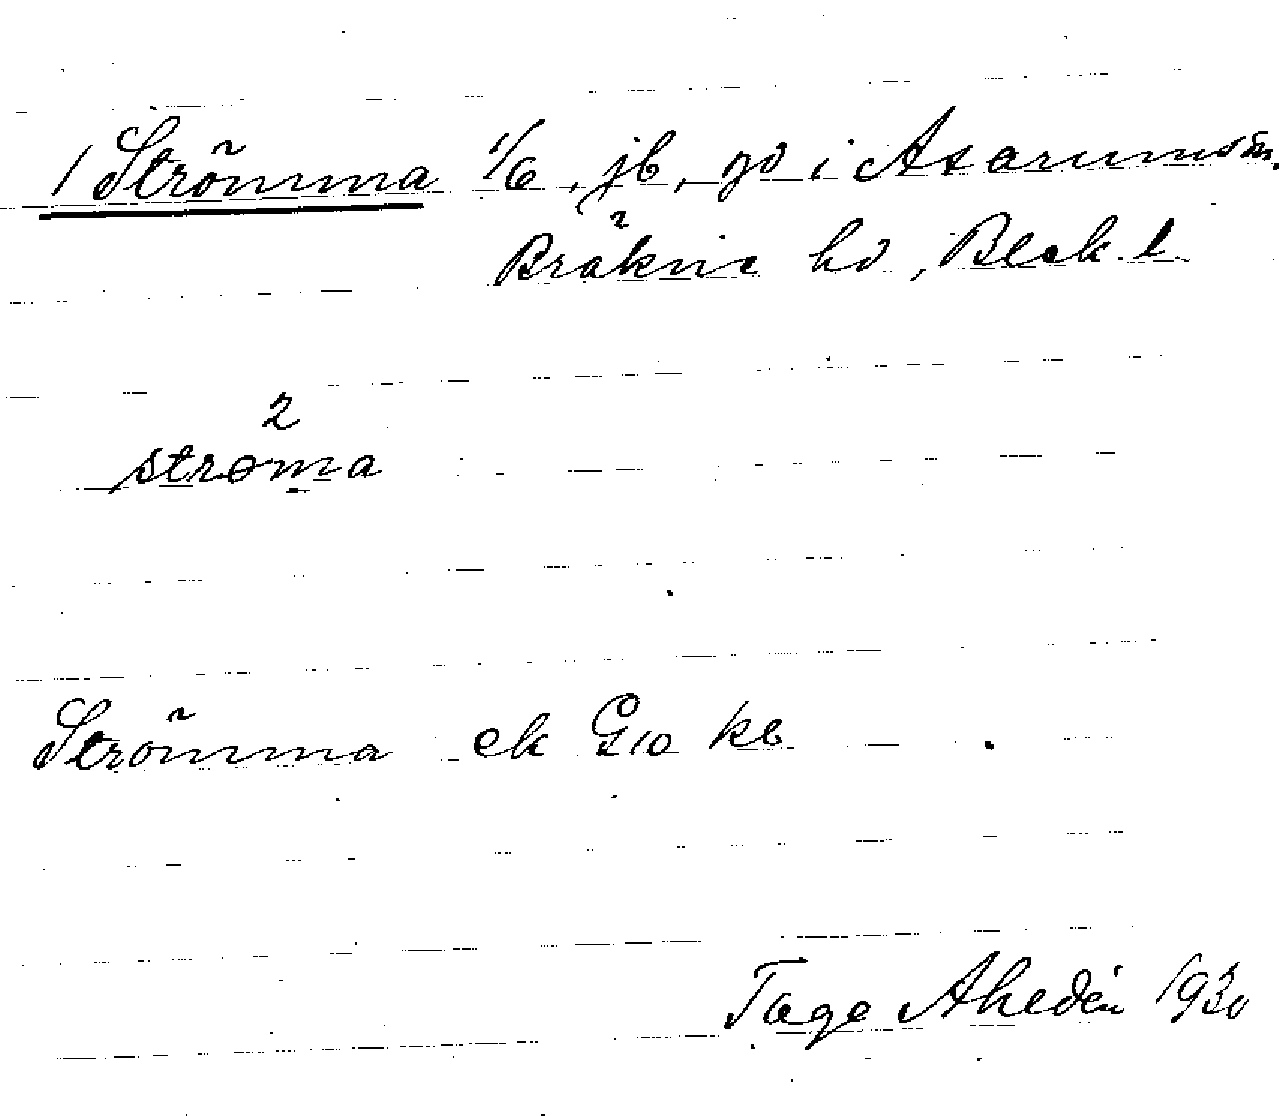 1 Strömma 1/6, jb, gd i Asarums sn.
Bräkne hd, Blek. l
2
strøma
Strömma ek G10 kb
Tage Ahedén 1930